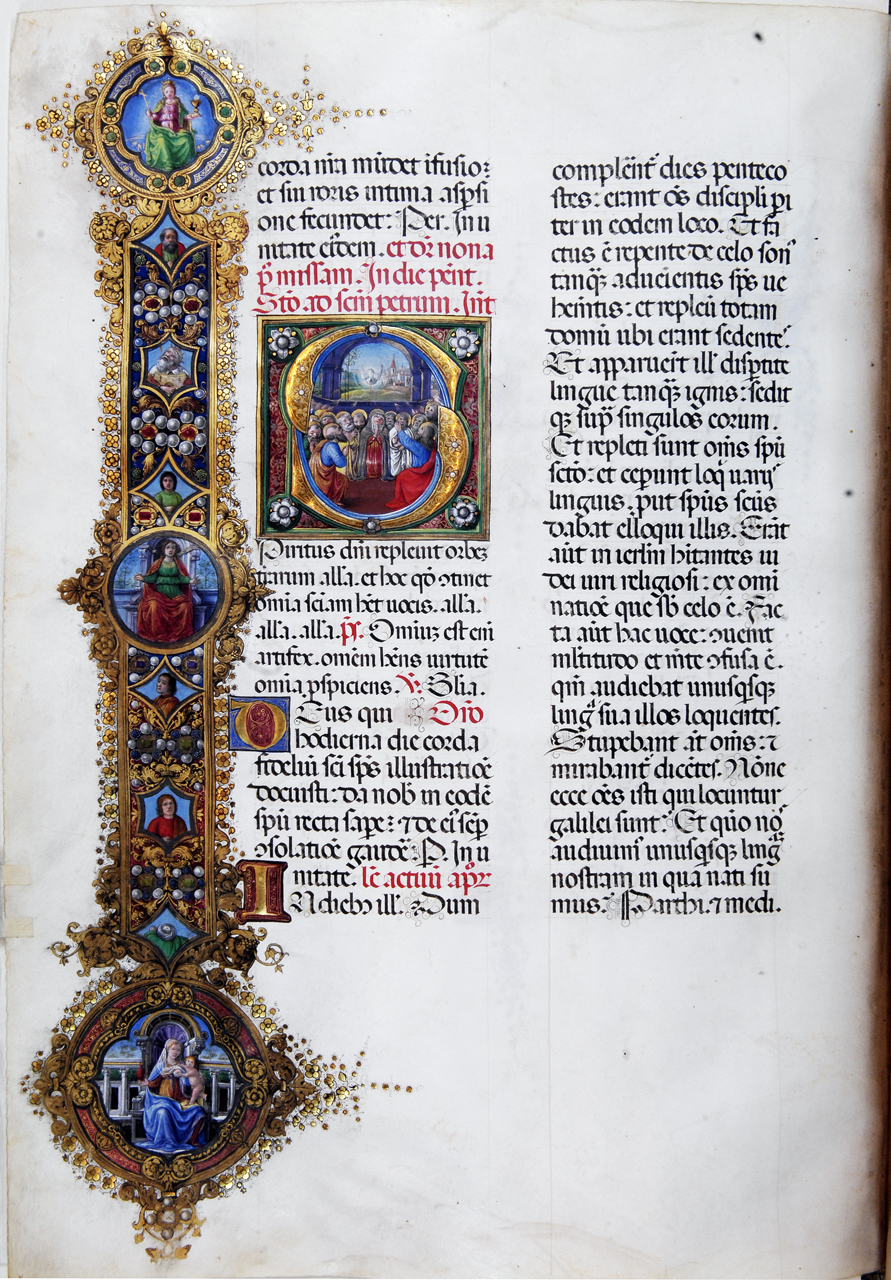 corda nr̄a mūdet īfusio:
et sui roris intima asp̄si
one fecundet: Per. In u
nitate eiᷤdem. et dr̄ nona
p̄ missam. In die pēnt.
Stō. ad scm̄ petrum. Int̄
Spiritus dn̄i repleuit orbeꝫ
terrarum all'a. et hoc qō ↄtinet
omīa sciam h̄et uocis. all'a.
all'a. all'a. pˢ. Omniuꝫ est eni
artifex. omēm hēns uirtutē
omīa ꝓspiciens. ℣. Gl̄ia.
Deus qui Orō
hodierna die corda
fideliū sc̄i sp̄s illustratiōe
docuisti: da nob̄ in eodē
sp̄ū recta sape: ⁊ de eiˢ sēp
ↄsolatiōe gaudē: P. In u
nitate. lc̄ actuū apl'oꝝ
In dieb ill'. Dum
complēnt̄ dies penteco
stes: erant ōs discipli pi
ter in eodem loco. Et fa
ctus ē repente de celo son
tanqꝫ aduenientis sp̄s ue
hemītis: et repleū totam
domū ubi erant sedentes
Et apparuer̄t ill' disptite
lingue tanqꝫ ignis: sedit
qꝫ suᵖ singulos eorum.
Et repleti sunt om̄s sp̄ū
scto: et ceperunt loq̄ uarijˢ
linguis. put sp̄us sc̄us
dabat elloqui illis. Erāt
aūt in ierl̄m hītantes iu
dei uiri religiosi: ex omī
natiōe que sb̄ celo ē. Fac
ta aūt hac uoce: ↄuenit
ml̄titudo et mēte ↄfusa ē.
qm̄ audiebat unusqˢqꝫ
lingᵃ sua illos loquentes.
Stupebant āt om̄s: ⁊
mirabant̄ dicētes. Nōne
ecce ōes isti qui locuntur
galilei sunt: Et quō noˢ
audiuimˢ unusqˢqꝫ lingᵃ
nostram in qua nati su
mus: Parthi. ⁊ medi.